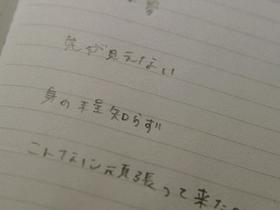 先が見えない
身の程知らず
こんなに頑張って来た